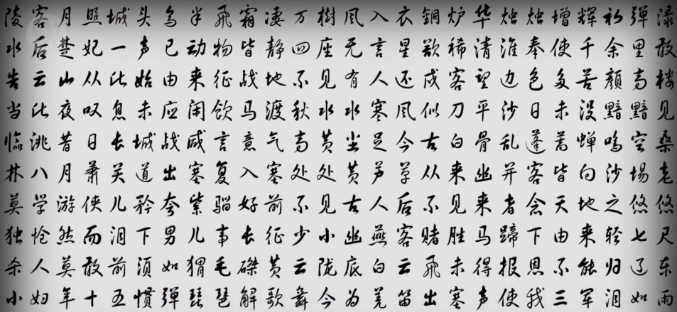 陵客月照城头乌半飞霜凄万树风入衣铜炉华烛烛增辉初弹渌
水后楚妃一声已动物皆静四座无言星欲稀清淮奉使千余里敢
告云山从此始由来征战地不见有人还戍客望边色多苦颜高楼
当此夜叹息未应闲饮马渡秋水水寒风似刀平沙日未没黯黯见
临洮昔日长城战咸言意气高黄尘足今古白骨乱蓬蒿蝉鸣空桑
林八月萧关道出塞复入塞处处黄芦草从来幽并客皆向沙场老
莫学游侠儿矜夸紫骝好前不见古人后不见来者念天地之悠悠
独怆然而泪下男儿事长征少小幽燕客赌胜马蹄下由来轻七尺
杀人莫敢前须如猬毛磔黄云陇底白云飞未得报恩不能归辽东
小妇年十五惯弹琵琶解歌舞今为羌笛出塞声使我三军泪如雨